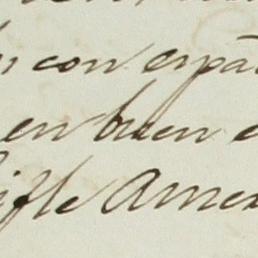 con espa
en buen e
ifle Amer